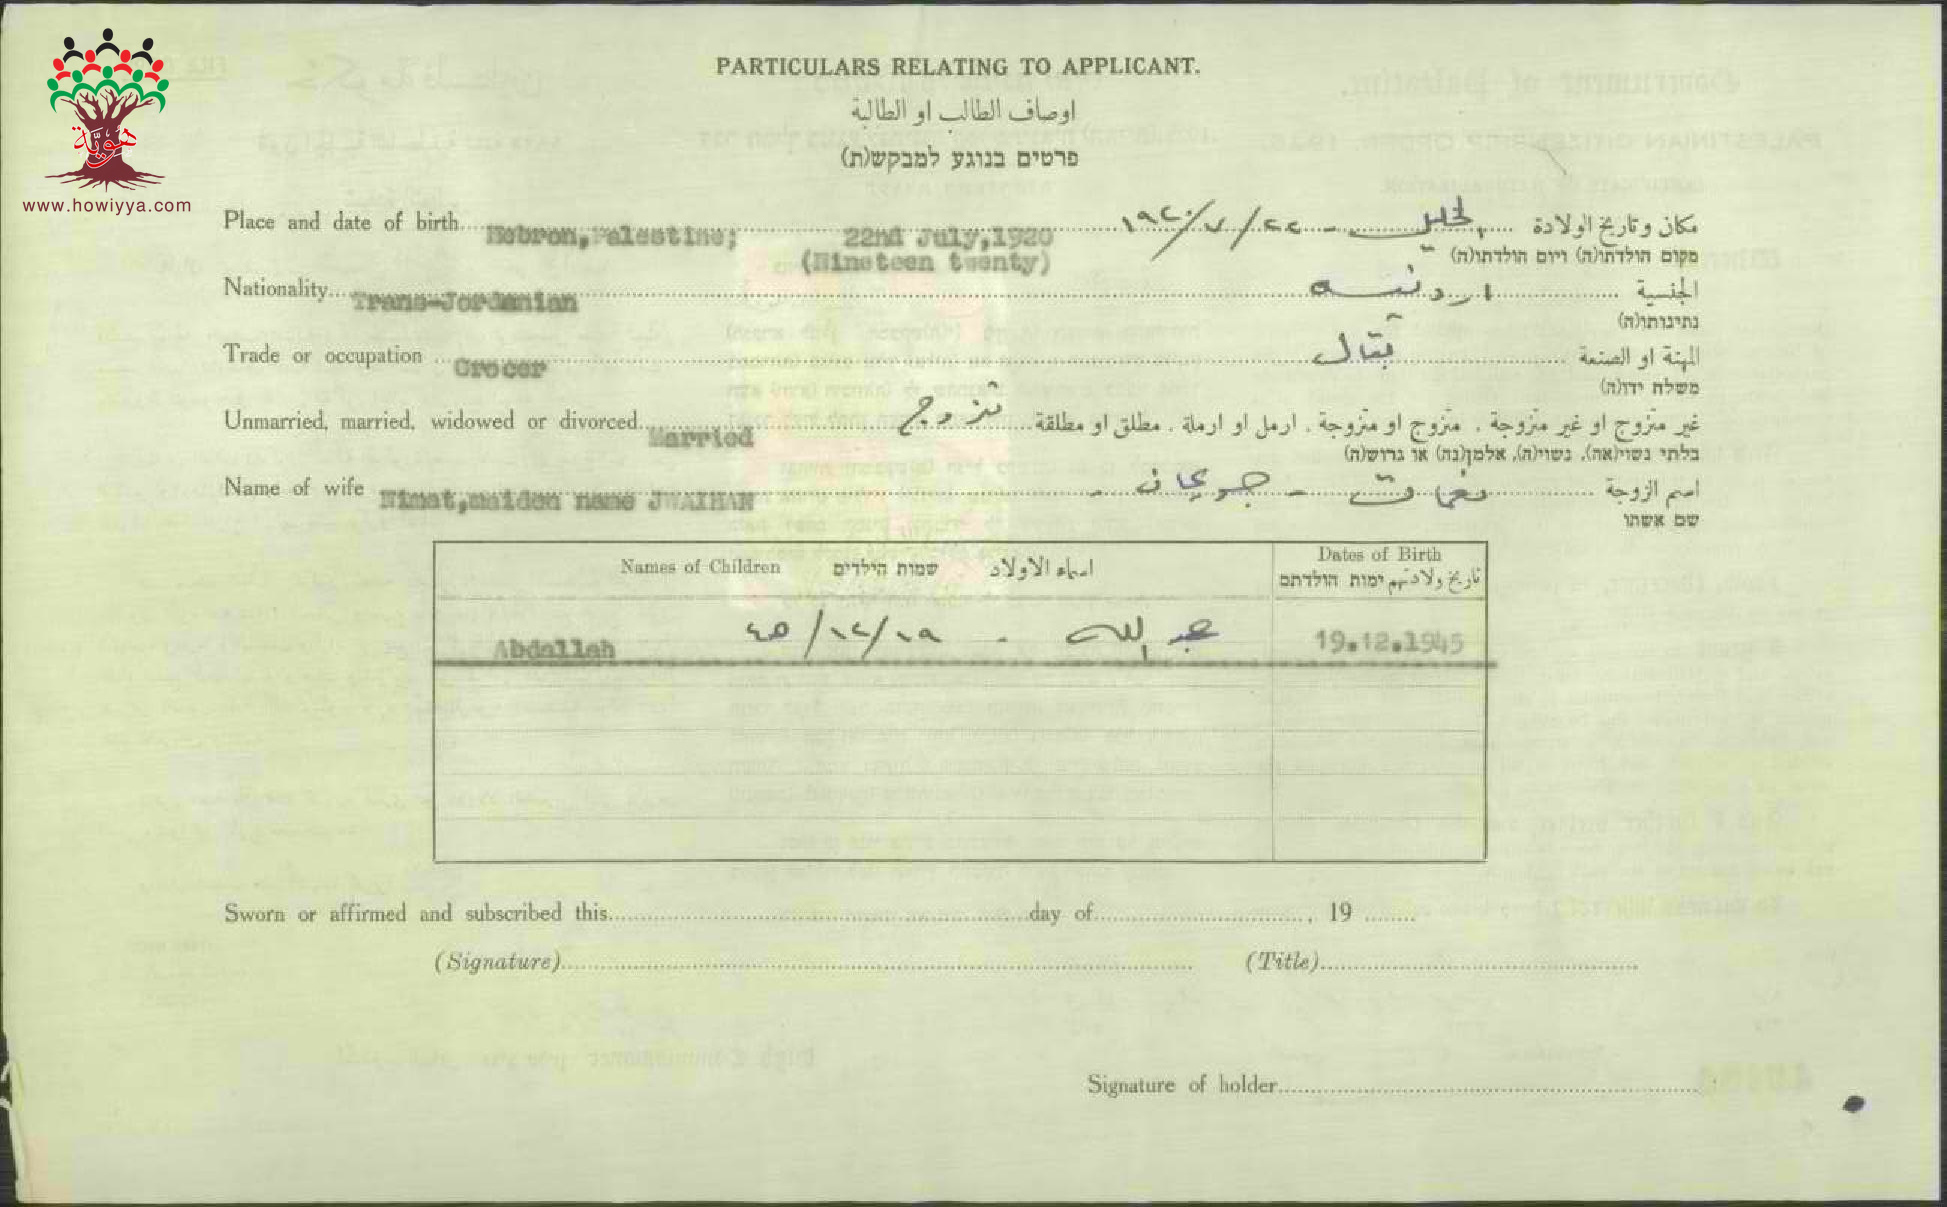 هُوِيَّة
www.howiyya.com
PARTICULARS RELATING TO APPLICANT.
اوصاف الطالب او الطالبة
פרטים בנוגע למבקש(ת)
Place and date of birth Hebron, Palestine; 22nd July, 1920 الخليل - ٢٢/٧/١٩٢٠ مكان وتاريخ الولادة
(Nineteen twenty) מקום הולדתו(ה) ויום הולדתו(ה)
Nationality Trans-Jordanian اردنية الجنسية
נתינותו(ה)
Trade or occupation Grocer بقال المهنة او الصنعة
משלח ידו(ה)
Unmarried, married, widowed or divorced Married متزوج غير متزوج او غير متزوجة . متزوج او متزوجة . ارمل او ارملة . مطلق او مطلقة
בלתי נשוי(אה), נשוי(ה), אלמן(נה) או גרוש(ה)
Name of wife Nimat, maiden name JWAIHAN نعمات - جويحان - اسم الزوجة
שם אשתו
Names of Children שמות הילדים اسماء الاولاد Dates of Birth
تاريخ ولادتهم ימות הולדתם
Abdallah عبد الله - ١٩/١٢/٤٥ 19.12.1945
Sworn or affirmed and subscribed this day of , 19
(Signature) (Title)
Signature of holder